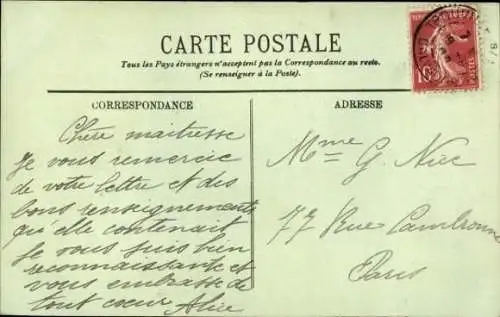 CARTE POSTALE
Tous les Pays étrangers n'acceptent pas la Correspondance au recto.
(Se renseigner à la Poste).
CORRESPONDANCE
Chère maitresse
Je vous remercie
de votre lettre et des
bons renseignements
qu'elle contenait
Je vous suis bien
reconnaissante et
vous embrasse de
tout coeur Alice
ADRESSE
Mme G. Niec
77 Rue Cambronne
Paris
10
POSTES